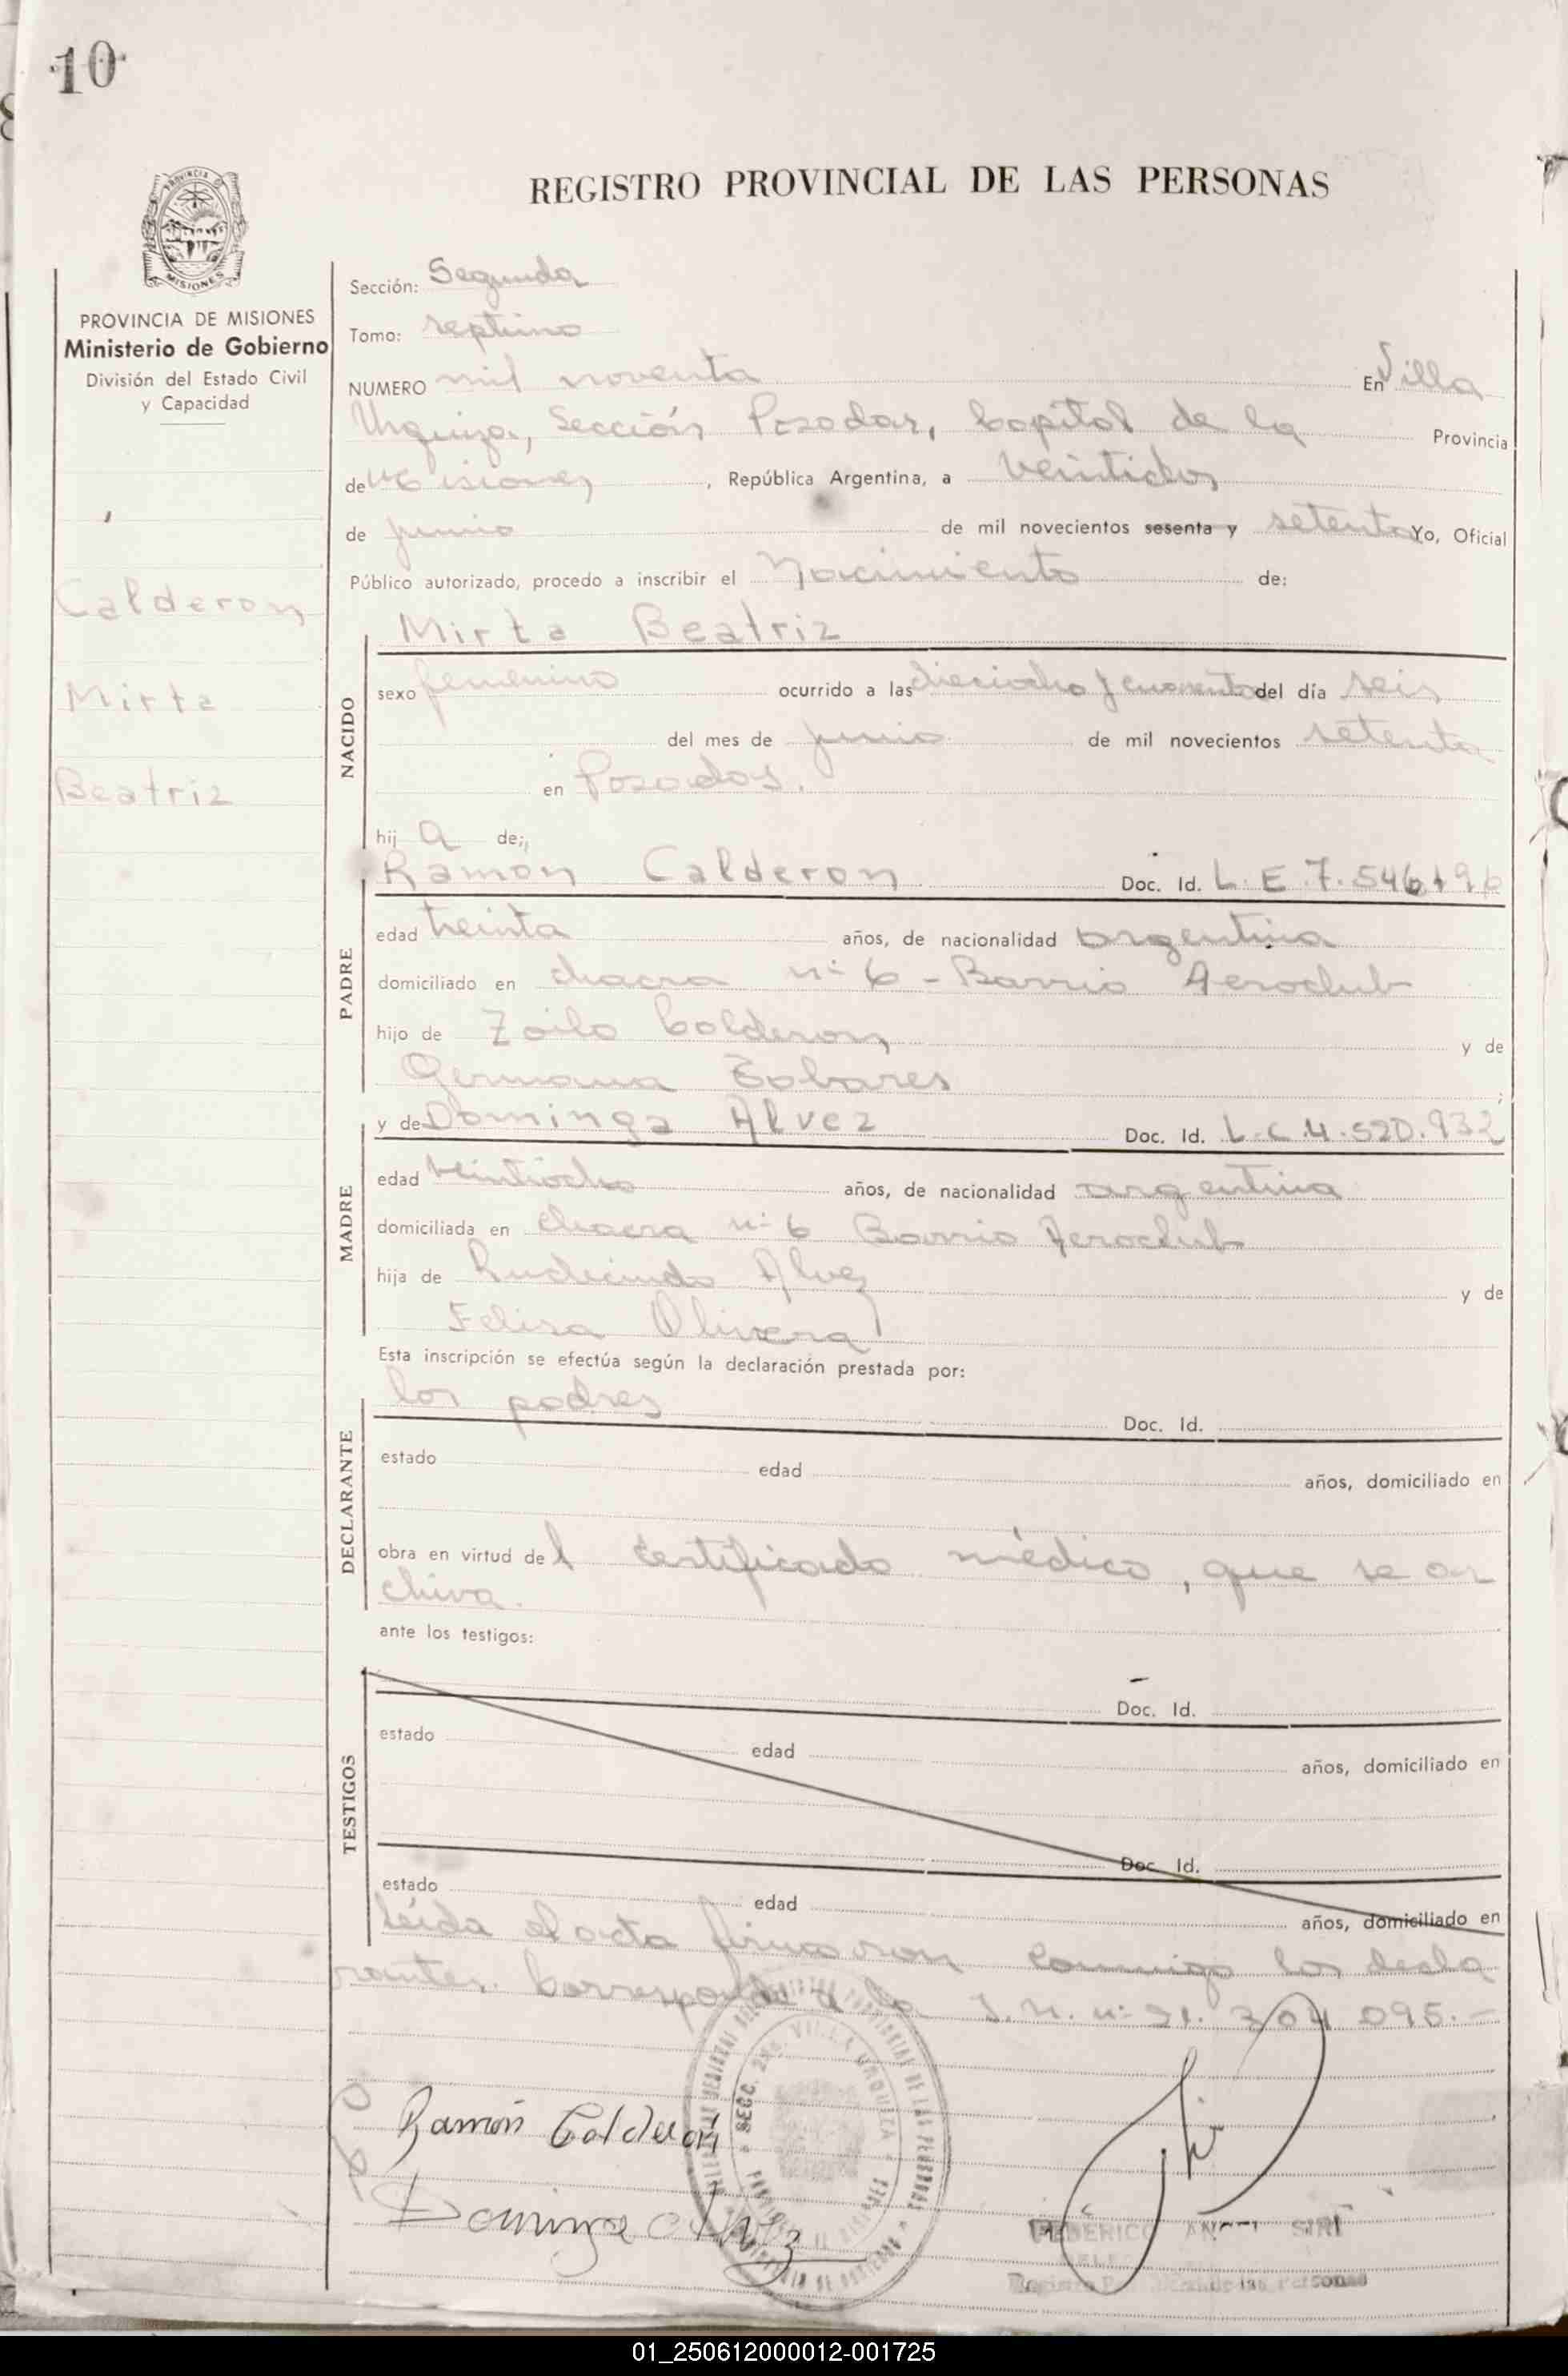 10
REGISTRO PROVINCIAL DE LAS PERSONAS
PROVINCIA DE MISIONES
Ministerio de Gobierno
División del Estado Civil
y Capacidad
Calderon
Mirta
Beatriz
Sección: Segunda
Tomo: septimo
NUMERO mil noventa En Villa
Urquiza, Sección Posadas, Capital de la Provincia
de Misiones, República Argentina, a veintidos
de junio de mil novecientos sesenta y setenta Yo, Oficial
Público autorizado, procedo a inscribir el Nacimiento de:
Mirta Beatriz
NACIDO
sexo femenino ocurrido a las dieciocho y cuarenta del día seis
del mes de junio de mil novecientos setenta
en Posadas.
hij a de;
Ramon Calderon Doc. Id. L.E. 7.546.196
PADRE
edad treinta años, de nacionalidad argentina
domiciliado en chacra nº 6 - Barrio Aeroclub
hijo de Zoilo Calderon y de
Germana Tobares ;
y de Dominga Alvez Doc. Id. L.C. 4.520.932
MADRE
edad veintiocho años, de nacionalidad argentina
domiciliada en chacra nº 6 Barrio Aeroclub
hija de Rudecindo Alvez y de
Felisa Olivera
Esta inscripción se efectúa según la declaración prestada por:
los padres Doc. Id.
DECLARANTE
estado edad años, domiciliado en
obra en virtud del certificado médico, que se ar
chiva.
ante los testigos:
TESTIGOS
Doc. Id.
estado edad años, domiciliado en
Doc. Id.
estado edad años, domiciliado en
Leida el acta firmaron conmigo los decla
rantes. Corresponde a la I.N. nº 21.304.095.-
SECC. 2da. VILLA URQUIZA
Ramón Calderón
Dominga Alvez
FEDERICO ANGEL SIRI
Registro Provincial de las Personas
01_250612000012-001725